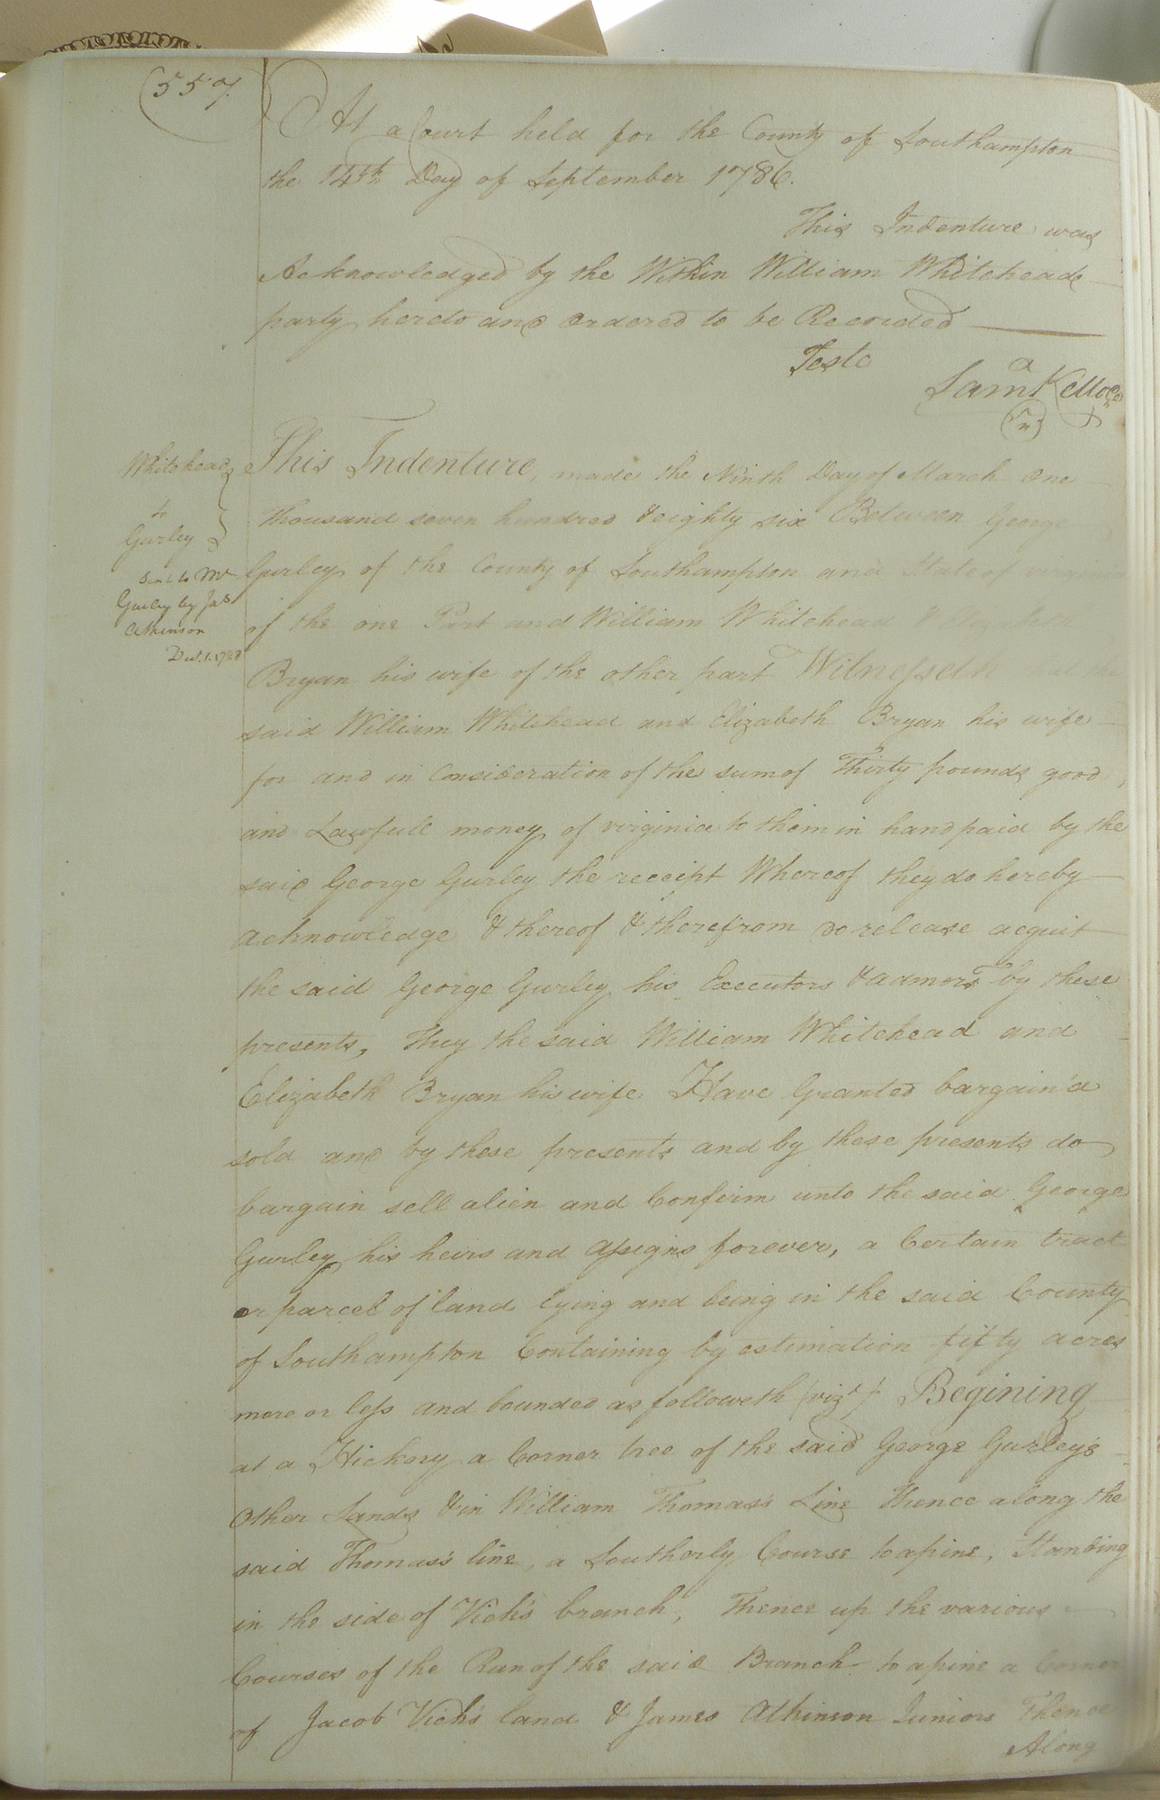 557
At a Court held for the County of Southampton
the 14th Day of September 1786.
This Indenture was
Acknowledged by the Within William Whitehead
party hereto and ordered to be Recorded
Teste
Saml Kello
Whitehead
to
Gurley
Sent to Mr
Gurley by Jas
Atkinson
This Indenture, made the Ninth Day of March one
thousand seven hundred & eighty six Between George
Gurley of the County of Southampton and State of virginia
of the one Part and William Whitehead & Elizabeth
Bryan his wife of the other part Witnesseth that the
said William Whitehead and Elizabeth Bryan his wife
for and in Consideration of the sum of Thirty pounds good
and Lawfull money of virginia to them in hand paid by the
said George Gurley the receipt Whereof they do hereby
acknowledge & thereof & therefrom do release acquit
the said George Gurley his Executors & admors by these
presents, They the said William Whitehead and
Elizabeth Bryan his wife Have Granted bargain'd
sold and by these presents and by these presents do
bargain sell alien and Confirm unto the said George
Gurley his heirs and assigns forever, a Certain tract
or parcel of land lying and being in the said County
of Southampton Containing by estimation fifty acres
more or less and bounded as followeth (vizt) Begining
at a Hickory a Corner tree of the said George Gurley's
Other Lands & in William Thomas's Line Thence along the
said Thomas's line, a Southerly Course to a pine, Standing
in the side of Vick's branch, Thence up the various
Courses of the Run of the said Branch to a pine a Corner
of Jacob Vick's land & James Atkinson Juniors Thence
Along